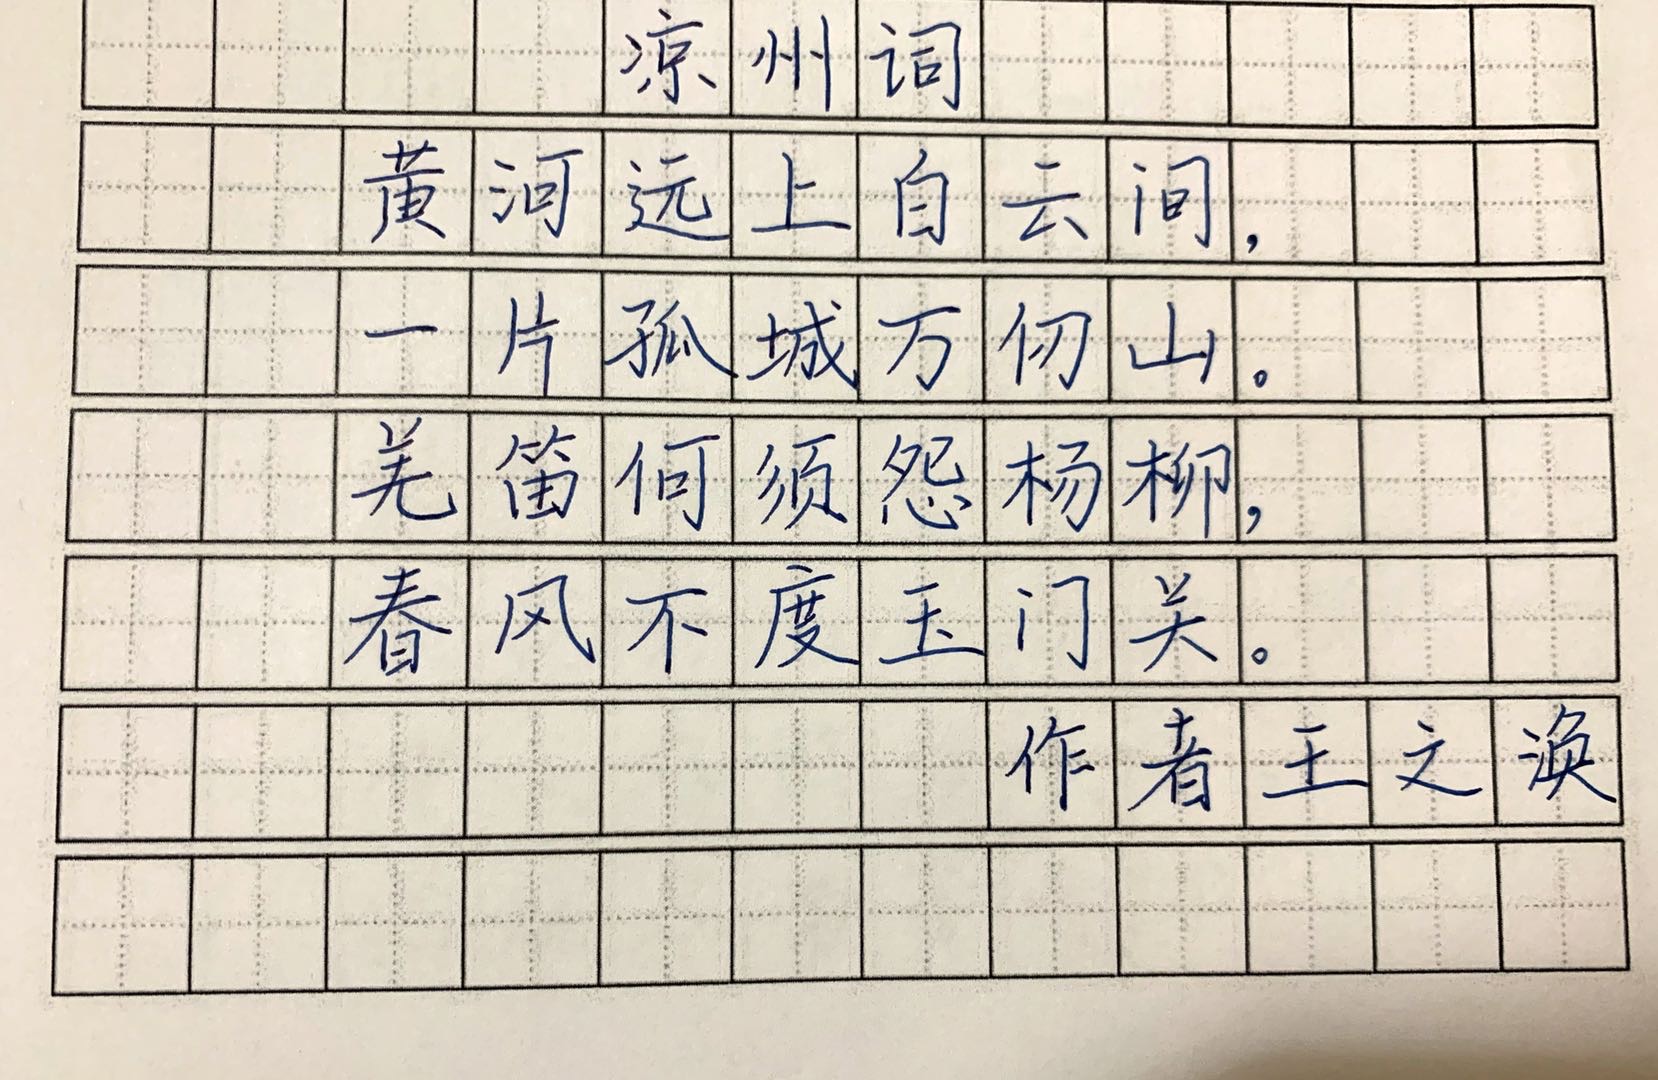 凉州词
黄河远上白云间，
一片孤城万仞山。
羌笛何须怨杨柳，
春风不度玉门关。
作者王之涣